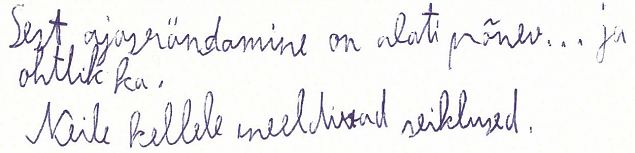 Sest ajasrändamine on alati põnev... ja
ohtlik ka.
Neile kellele meeldivad seiklused.